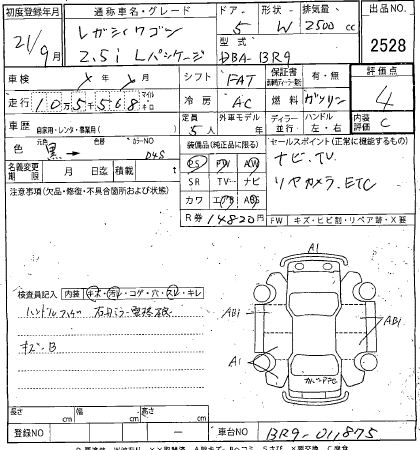 初度登録年月 通称車名・グレード ドア 形状 排気量 出品NO
21/9月 レガシィワゴン 2.5i Lパッケージ 5 W 2500cc 2528
型式 DBA-BR9
車検 年 月 シフト FAT 保証書 有・無 評価点
走行 10万5千568 マイル キロ 冷房 AC 燃料 ガソリン 4
車歴 自家用・レンタ・事業用( ) 定員 5人 外車モデル ディーラー・並行 ハンドル 左・右 内装評価 C
色 元色 黒→ 色替 カラーNO D4S 装備品(純正品に限る) セールスポイント(正常に機能するもの)
PS PW AW ナビ、TV
名義変更期限 月 日迄 積載量 t SR TV ナビ リヤカメラ、ETC
注意事項(欠品・修復・不具合箇所および状態) カワ エアB ABS
R券 14820円 FW キズ・ヒビ割・リペア跡・X要
A1
検査員記入 内装 キズ・汚レ・コゲ・穴・スレ・キレ
AB1 AB1
キズ・B
A1
長さ cm 幅 cm 高さ cm
登録NO ー 車台NO BR9-011875